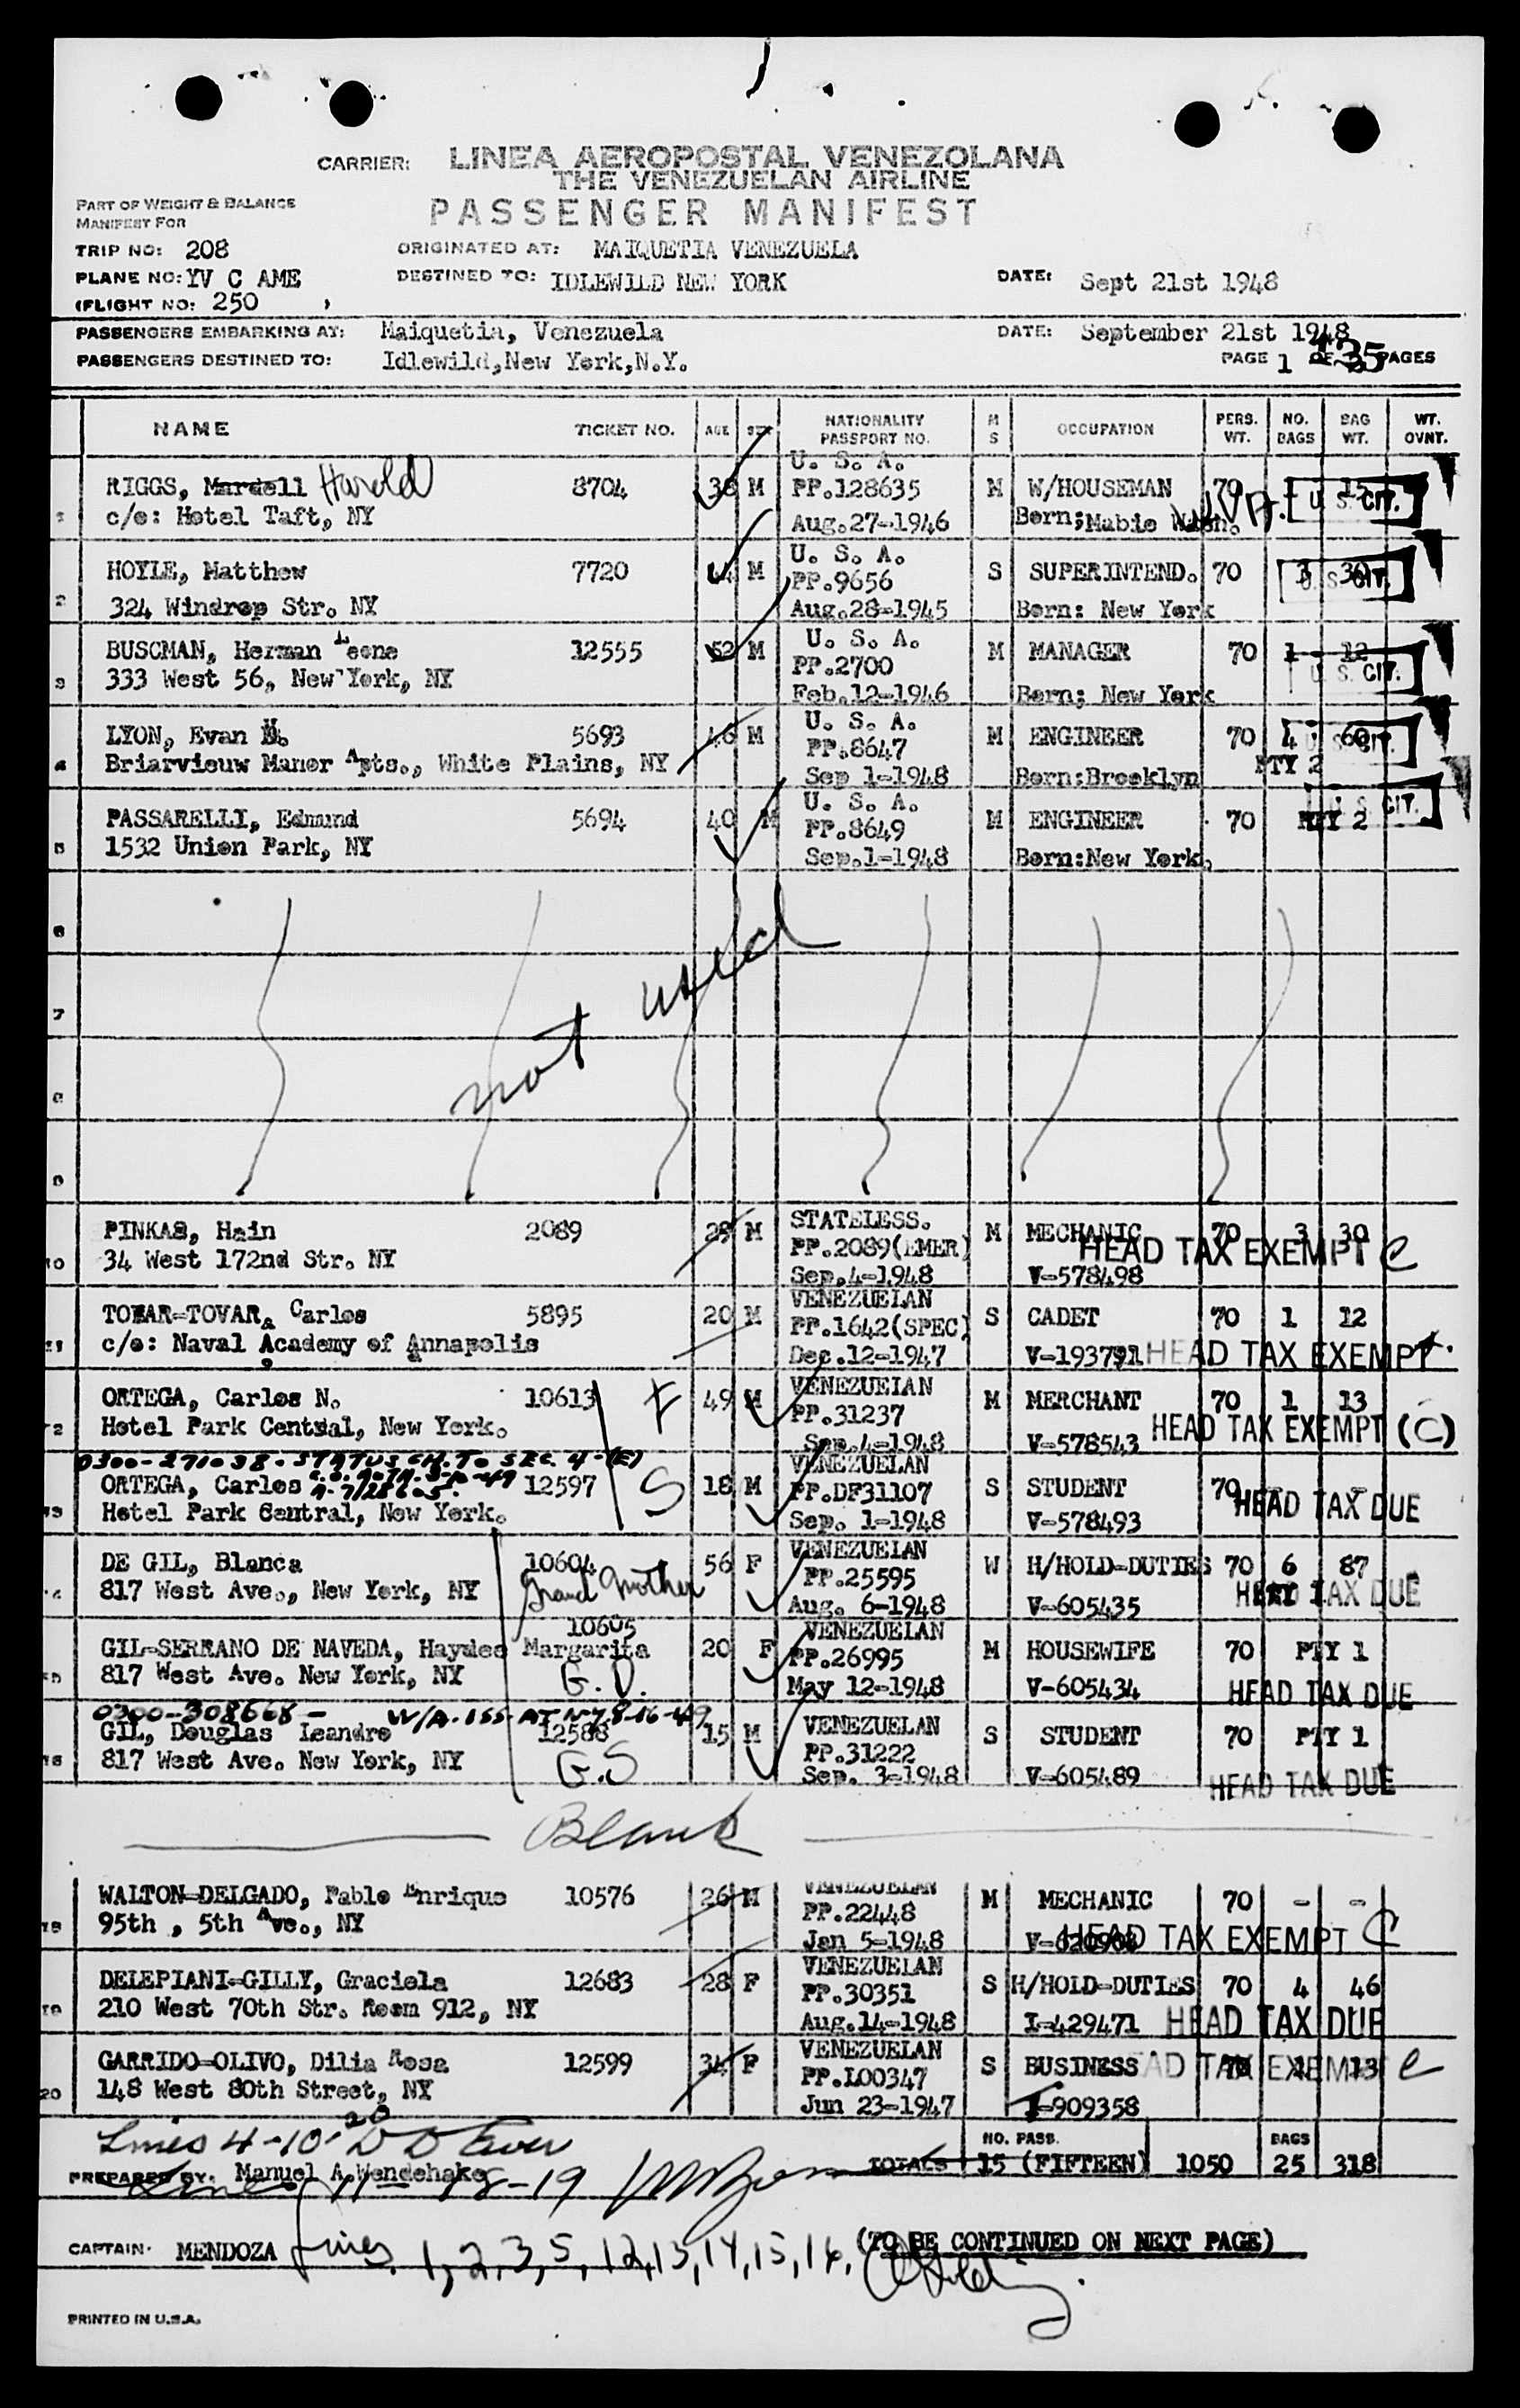 CARRIER: LINEA AEROPOSTAL VENEZOLANA
THE VENEZUELAN AIRLINE
PART OF WEIGHT & BALANCE
MANIFEST FOR
PASSENGER MANIFEST
TRIP NO: 208 ORIGINATED AT: MAIQUETIA VENEZUELA
PLANE NO: YV C AME DESTINED TO: IDLEWILD NEW YORK DATE: Sept 21st 1948
(FLIGHT NO: 250 )
PASSENGERS EMBARKING AT: Maiquetia, Venezuela DATE: September 21st 1948
PASSENGERS DESTINED TO: Idlewild,New York,N.Y. PAGE 1 OF PAGES
NAME TICKET NO. AGE SEX NATIONALITY PASSPORT NO. M S OCCUPATION PERS. WT. NO. BAGS BAG WT. WT. OVNT.
U. S. A.
1 RIGGS, Mardell Harold 8704 38 M PP.128635 M W/HOUSEMAN 70 15
c/o: Hotel Taft, NY Aug.27-1946 Born;Mabie W.VA. U. S. CIT.
U. S. A.
2 HOYLE, Matthew 7720 M PP.9656 S SUPERINTEND. 70 3 30 U. S. CIT.
324 Windrop Str. NY Aug.28-1945 Born: New York
3 BUSCMAN, Herman Leone 12555 52 M U. S. A. M MANAGER 70 1 12
333 West 56, New York, NY PP.2700 U. S. CIT.
Feb.12-1946 Born; New York
U. S. A.
4 LYON, Evan 5693 46 M PP.8647 M ENGINEER 70 4 60 U. S. CIT.
Briarvieuw Maner Apts., White Plains, NY Sep 1-1948 Born:Brooklyn PTY 2
U. S. A. U. S. CIT.
5 PASSARELLI, Edmund 5694 40 M PP.8649 M ENGINEER 70 PTY 2
1532 Union Park, NY Sep.1-1948 Born:New York.
6
7
8
9
not used
10 PINKAS, Hain 2089 29 M STATELESS. M MECHANIC 70 3 30
34 West 172nd Str. NY PP.2089(EMER) HEAD TAX EXEMPT C
Sep.4-1948 V-578498
11 TOVAR-TOVAR, Carlos 5895 20 M VENEZUELAN S CADET 70 1 12
c/o: Naval Academy of Annapolis PP.1642(SPEC)
Dec.12-1947 V-193791 HEAD TAX EXEMPT
12 ORTEGA, Carlos N. 10613 F 49 M VENEZUELAN M MERCHANT 70 1 13
Hotel Park Central, New York. PP.31237 HEAD TAX EXEMPT (C)
Sep.4-1948 V-578543
0300-271038-STATUS CH. TO SEC. 4-(E)
13 ORTEGA, Carlos 12597 S 18 M VENEZUELAN S STUDENT 70 - -
Hotel Park Central, New York. PP.DF31107 HEAD TAX DUE
Sep. 1-1948 V-578493
14 DE GIL, Blanca 10604 56 F VENEZUELAN W H/HOLD-DUTIES 70 6 87
817 West Ave., New York, NY Grand Mother PP.25595 HEAD TAX DUE
Aug. 6-1948 V-605435
10605
15 GIL-SERRANO DE NAVEDA, Haydee Margarita 20 F VENEZUELAN M HOUSEWIFE 70 PTY 1
817 West Ave. New York, NY G.D. PP.26995
May 12-1948 V-605434 HEAD TAX DUE
0300-308668- W/A-ISS-AT N-Y 8-16-49
16 GIL, Douglas Leandro 12588 15 M VENEZUELAN S STUDENT 70 PTY 1
817 West Ave. New York, NY G.S PP.31222
Sep. 3-1948 V-605489 HEAD TAX DUE
Blank
18 WALTON-DELGADO, Pablo Enrique 10576 26 M VENEZUELAN M MECHANIC 70 - -
95th , 5th Ave., NY PP.22448 HEAD TAX EXEMPT C
Jan 5-1948
19 DELEPIANI-GILLY, Graciela 12683 28 F VENEZUELAN S H/HOLD-DUTIES 70 4 46
210 West 70th Str. Room 912, NY PP.30351
Aug.14-1948 I-429471 HEAD TAX DUE
20 GARRIDO-OLIVO, Dilia Rosa 12599 34 F VENEZUELAN S BUSINESS 70 1 13 HEAD TAX EXEMPT C
148 West 80th Street, NY PP.L00347
Jun 23-1947 I-909358
Lines 4-10-20
NO. PASS. BAGS
PREPARED BY. Manuel A.Wendehake TOTALS 15 (FIFTEEN) 1050 25 318
Lines 11 18-19
(TO BE CONTINUED ON NEXT PAGE)
CAPTAIN. MENDOZA Lines 1, 2, 3, 5, 12, 13, 14, 15, 16.
PRINTED IN U.S.A.